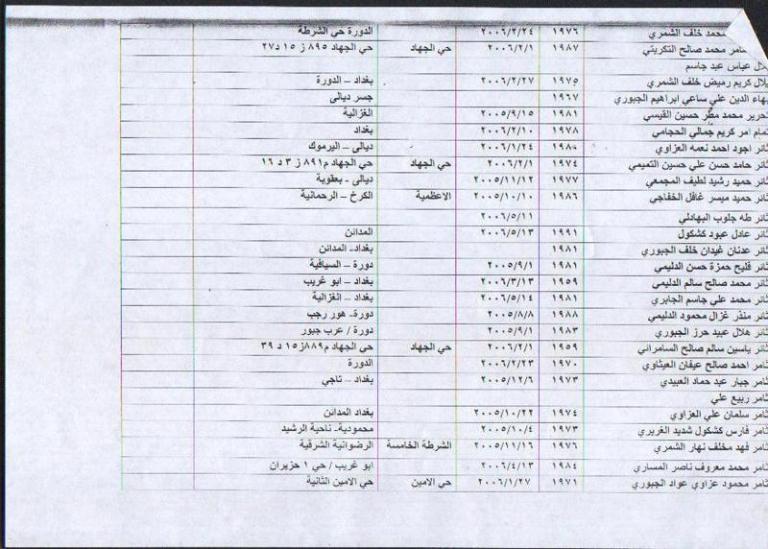 محمد خلف الشمري ١٩٧٦ ٢٠٠٦/٢/٢٤ الدورة حي الشرطة
محمد صالح التكريتي ١٩٨٧ ٢٠٠٦/٢/١ حي الجهاد حي الجهاد ٨٩٥ ز ١٥ د٢٧
عباس عبد جاسم
كريم رميض خلف الشمري ١٩٧٥ ٢٠٠٦/٢/٢٧ بغداد – الدورة
بهاء الدين علي ساعي ابراهيم الجبوري ١٩٦٧ جسر ديالى
تحرير محمد مطر حسين القيسي ١٩٨١ ٢٠٠٥/٩/١٥ الغزالية
تمام امر كريم جمالي الحجامي ١٩٧٨ ٢٠٠٦/٢/١٠ بغداد
ثائر اجود احمد نعمه العزاوي ١٩٨٠ ٢٠٠٦/١/٢٤ ديالى – اليرموك
ثائر حامد حسن علي حسين التعيمي ١٩٧٤ ٢٠٠٦/٢/١ حي الجهاد حي الجهاد م٨٩١ ز ٣ د ١٦
ثائر حميد رشيد لطيف المجمعي ١٩٧٧ ٢٠٠٥/١١/١٢ ديالى - بعقوبة
ثائر حميد ميسر غافل الخفاجي ١٩٨٦ ٢٠٠٥/١٠/١٠ الاعظمية الكرخ – الرحمانية
ثائر طه جلوب البهادلي ٢٠٠٦/٥/١١
ثائر عادل عبود كشكول ١٩٩١ ٢٠٠٦/٥/١٣ المدائن
ثائر عدنان غيدان خلف الجبوري ١٩٨١ بغداد- المدائن
ثائر فليح حمزة حسن الدليمي ١٩٨١ ٢٠٠٥/٩/١ دورة – السيافية
ثائر محمد صالح سالم الدليمي ١٩٥٩ ٢٠٠٦/٣/١٣ بغداد – ابو غريب
ثائر محمد علي جاسم الجابري ١٩٨١ ٢٠٠٦/٥/١٤ بغداد – الغزالية
ثائر منذر غزال محمود الدليمي ١٩٨٨ ٢٠٠٥/٨/٨ دورة- هور رجب
ثائر هلال عبيد حرز الجبوري ١٩٨٣ ٢٠٠٥/٩/١ دورة / عرب جبور
ثائر ياسين سالم صالح السامرائي ١٩٥٩ ٢٠٠٦/٢/١ حي الجهاد حي الجهاد م٨٨٩ز١٥ د ٣٩
ثامر احمد صالح عيفان العيثاوي ١٩٧٠ ٢٠٠٦/٢/٢٣ الدورة
ثامر جبار عبد حماد العبيدي ١٩٧٣ ٢٠٠٥/١٢/٦ بغداد – تاجي
ثامر ربيع علي
ثامر سلمان علي العزاوي ١٩٧٤ ٢٠٠٥/١٠/٢٢ بغداد المدائن
ثامر فارس كشكول شديد الغريري ١٩٧٣ ٢٠٠٥/١٠/٤ محمودية- ناحية الرشيد
ثامر فهد مخلف نهار الشمري ١٩٧٦ ٢٠٠٥/١١/١٦ الشرطة الخامسة الرضوانية الشرقية
ثامر محمد معروف ناصر المساري ١٩٨٤ ٢٠٠٦/٤/١٣ ابو غريب / حي ١ حزيران
ثامر محمود عزاوي عواد الجبوري ١٩٧١ ٢٠٠٦/١/٢٧ حي الامين حي الامين الثانية